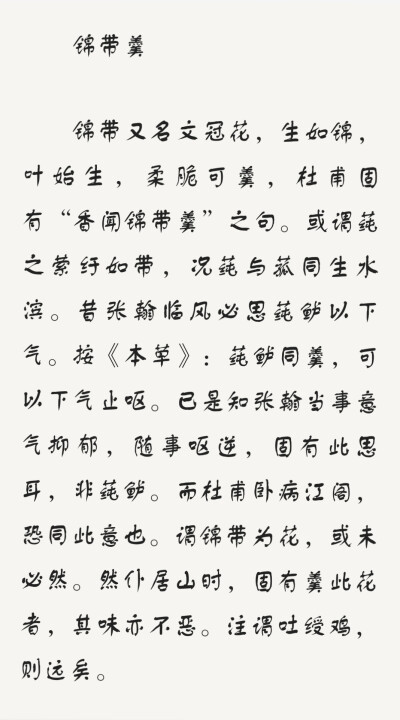 锦带羹
锦带又名文冠花，生如锦，
叶始生，柔脆可羹，杜甫固
有“香闻锦带羹”之句。或谓莼
之萦纡如带，况莼与菰同生水
滨。昔张翰临风必思莼鲈以下
气。按《本草》：莼鲈同羹，可
以下气止呕。已是知张翰当事意
气抑郁，随事呕逆，固有此思
耳，非莼鲈。而杜甫卧病江阁，
恐同此意也。谓锦带为花，或未
必然。然仆居山时，固有羹此花
者，其味亦不恶。注谓吐绶鸡，
则远矣。